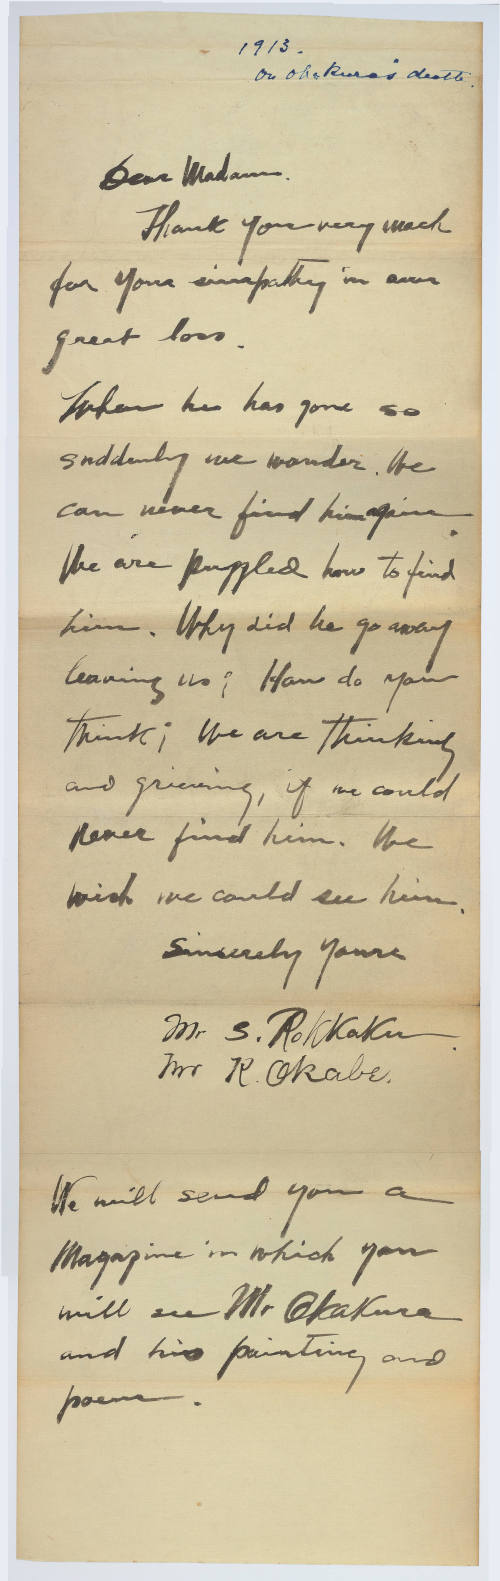 1913.
On Okakura's death.
Dear Madam.
Thank you very much
for your simpathy in our
great loss.
When he has gone so
suddenly we wonder. We
can never find him again.
We are puggled how to find
him. Why did he go away
leaving us; How do you
think; We are thinking
and grieving, if we could
never find him. We
wish we could see him.
Sincerely yours
Mr S. Rokkaku.
Mr K. Okabe.
We will send you a
Magazine in which you
will see Mr Okakura
and his painting and
poem.